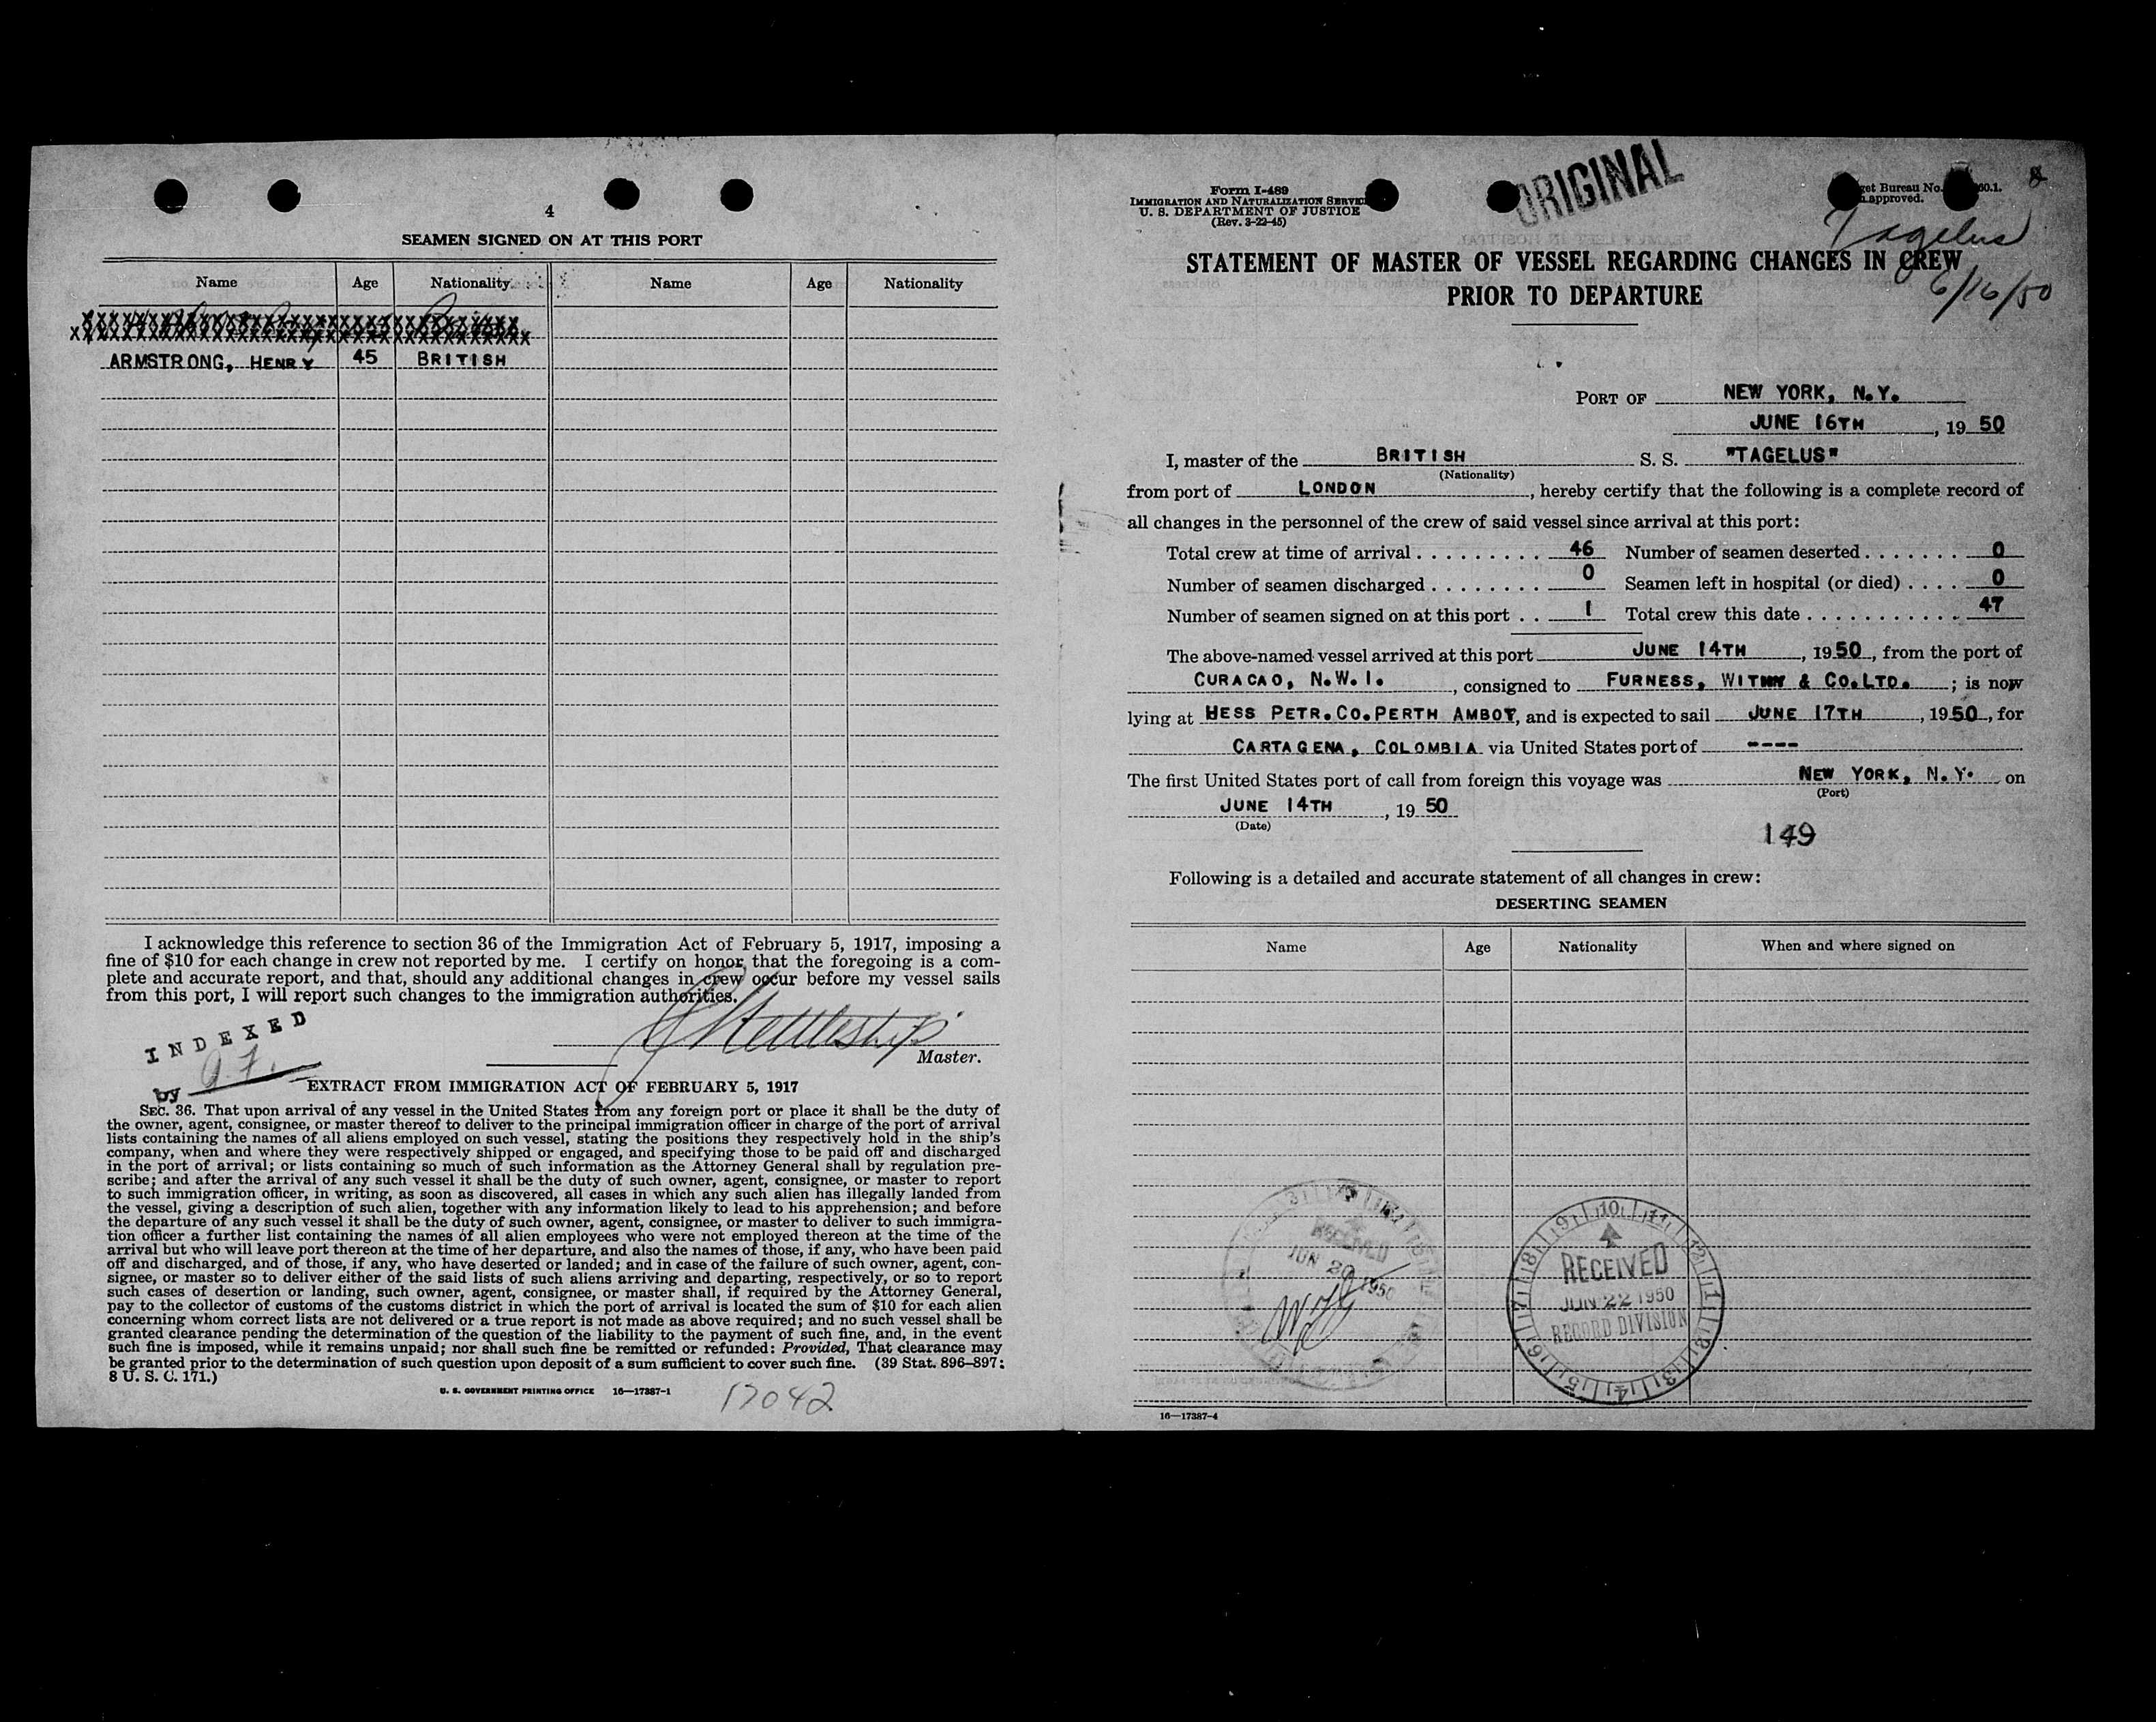 4
SEAMEN SIGNED ON AT THIS PORT
Name Age Nationality Name Age Nationality
ARMSTRONG, HENRY 45 BRITISH
I acknowledge this reference to section 36 of the Immigration Act of February 5, 1917, imposing a
fine of $10 for each change in crew not reported by me. I certify on honor that the foregoing is a com-
plete and accurate report, and that, should any additional changes in crew occur before my vessel sails
from this port, I will report such changes to the immigration authorities.
INDEXED
by
Master.
EXTRACT FROM IMMIGRATION ACT OF FEBRUARY 5, 1917
SEC. 36. That upon arrival of any vessel in the United States from any foreign port or place it shall be the duty of
the owner, agent, consignee, or master thereof to deliver to the principal immigration officer in charge of the port of arrival
lists containing the names of all aliens employed on such vessel, stating the positions they respectively hold in the ship's
company, when and where they were respectively shipped or engaged, and specifying those to be paid off and discharged
in the port of arrival; or lists containing so much of such information as the Attorney General shall by regulation pre-
scribe; and after the arrival of any such vessel it shall be the duty of such owner, agent, consignee, or master to report
to such immigration officer, in writing, as soon as discovered, all cases in which any such alien has illegally landed from
the vessel, giving a description of such alien, together with any information likely to lead to his apprehension; and before
the departure of any such vessel it shall be the duty of such owner, agent, consignee, or master to deliver to such immigra-
tion officer a further list containing the names of all alien employees who were not employed thereon at the time of the
arrival but who will leave port thereon at the time of her departure, and also the names of those, if any, who have been paid
off and discharged, and of those, if any, who have deserted or landed; and in case of the failure of such owner, agent, con-
signee, or master so to deliver either of the said lists of such aliens arriving and departing, respectively, or so to report
such cases of desertion or landing, such owner, agent, consignee, or master shall, if required by the Attorney General,
pay to the collector of customs of the customs district in which the port of arrival is located the sum of $10 for each alien
concerning whom correct lists are not delivered or a true report is not made as above required; and no such vessel shall be
granted clearance pending the determination of the question of the liability to the payment of such fine, and, in the event
such fine is imposed, while it remains unpaid; nor shall such fine be remitted or refunded: Provided, That clearance may
be granted prior to the determination of such question upon deposit of a sum sufficient to cover such fine. (39 Stat. 896–897;
8 U. S. C. 171.)
U. S. GOVERNMENT PRINTING OFFICE 16—17387-1
17042
Form I-489
IMMIGRATION AND NATURALIZATION SERVICE
U. S. DEPARTMENT OF JUSTICE
(Rev. 3-22-45)
ORIGINAL
get Bureau No. 60.1.
approved.
8
Tagelus
6/16/50
STATEMENT OF MASTER OF VESSEL REGARDING CHANGES IN CREW
PRIOR TO DEPARTURE
PORT OF NEW YORK, N.Y.
JUNE 16TH, 1950
I, master of the BRITISH S. S. "TAGELUS"
(Nationality)
from port of LONDON, hereby certify that the following is a complete record of
all changes in the personnel of the crew of said vessel since arrival at this port:
Total crew at time of arrival . . . . . . . . . 46 Number of seamen deserted . . . . . . . 0
Number of seamen discharged . . . . . . . . 0 Seamen left in hospital (or died) . . . . 0
Number of seamen signed on at this port . . 1 Total crew this date . . . . . . . . . . . . 47
The above-named vessel arrived at this port JUNE 14TH, 1950, from the port of
CURACAO, N.W.I., consigned to FURNESS, WITHY & CO.LTD. ; is now
lying at HESS PETR.CO.PERTH AMBOY, and is expected to sail JUNE 17TH, 1950, for
CARTAGENA, COLOMBIA via United States port of ----
The first United States port of call from foreign this voyage was NEW YORK, N.Y. on
(Port)
JUNE 14TH, 1950
(Date)
149
Following is a detailed and accurate statement of all changes in crew:
DESERTING SEAMEN
Name Age Nationality When and where signed on
RECEIVED
JUN 20 1950
RECEIVED
JUN 22 1950
RECORD DIVISION
9 10 11 12 1 2 3 4 5 6 7 8
16—17387-4